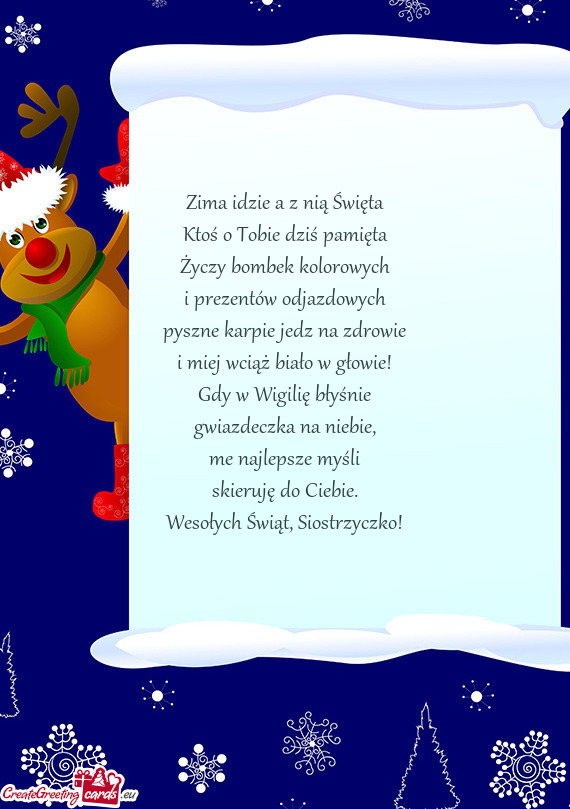 Zima idzie a z nią Święta
Ktoś o Tobie dziś pamięta
Życzy bombek kolorowych
i prezentów odjazdowych
pyszne karpie jedz na zdrowie
i miej wciąż biało w głowie!
Gdy w Wigilię błyśnie
gwiazdeczka na niebie,
me najlepsze myśli
skieruję do Ciebie.
Wesołych Świąt, Siostrzyczko!
CreateGreeting cards .eu